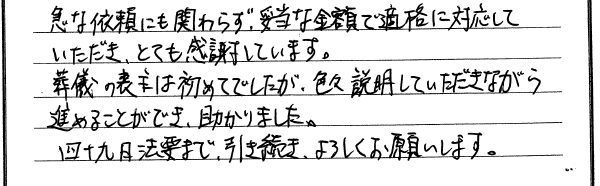 急な依頼にも関わらず、妥当な金額で適格に対応して
いただき、とても感謝しています。
葬儀の喪主は初めてでしたが、色々説明していただきながら
進めることができ、助かりました。
四十九日法要まで、引き続き、よろしくお願いします。